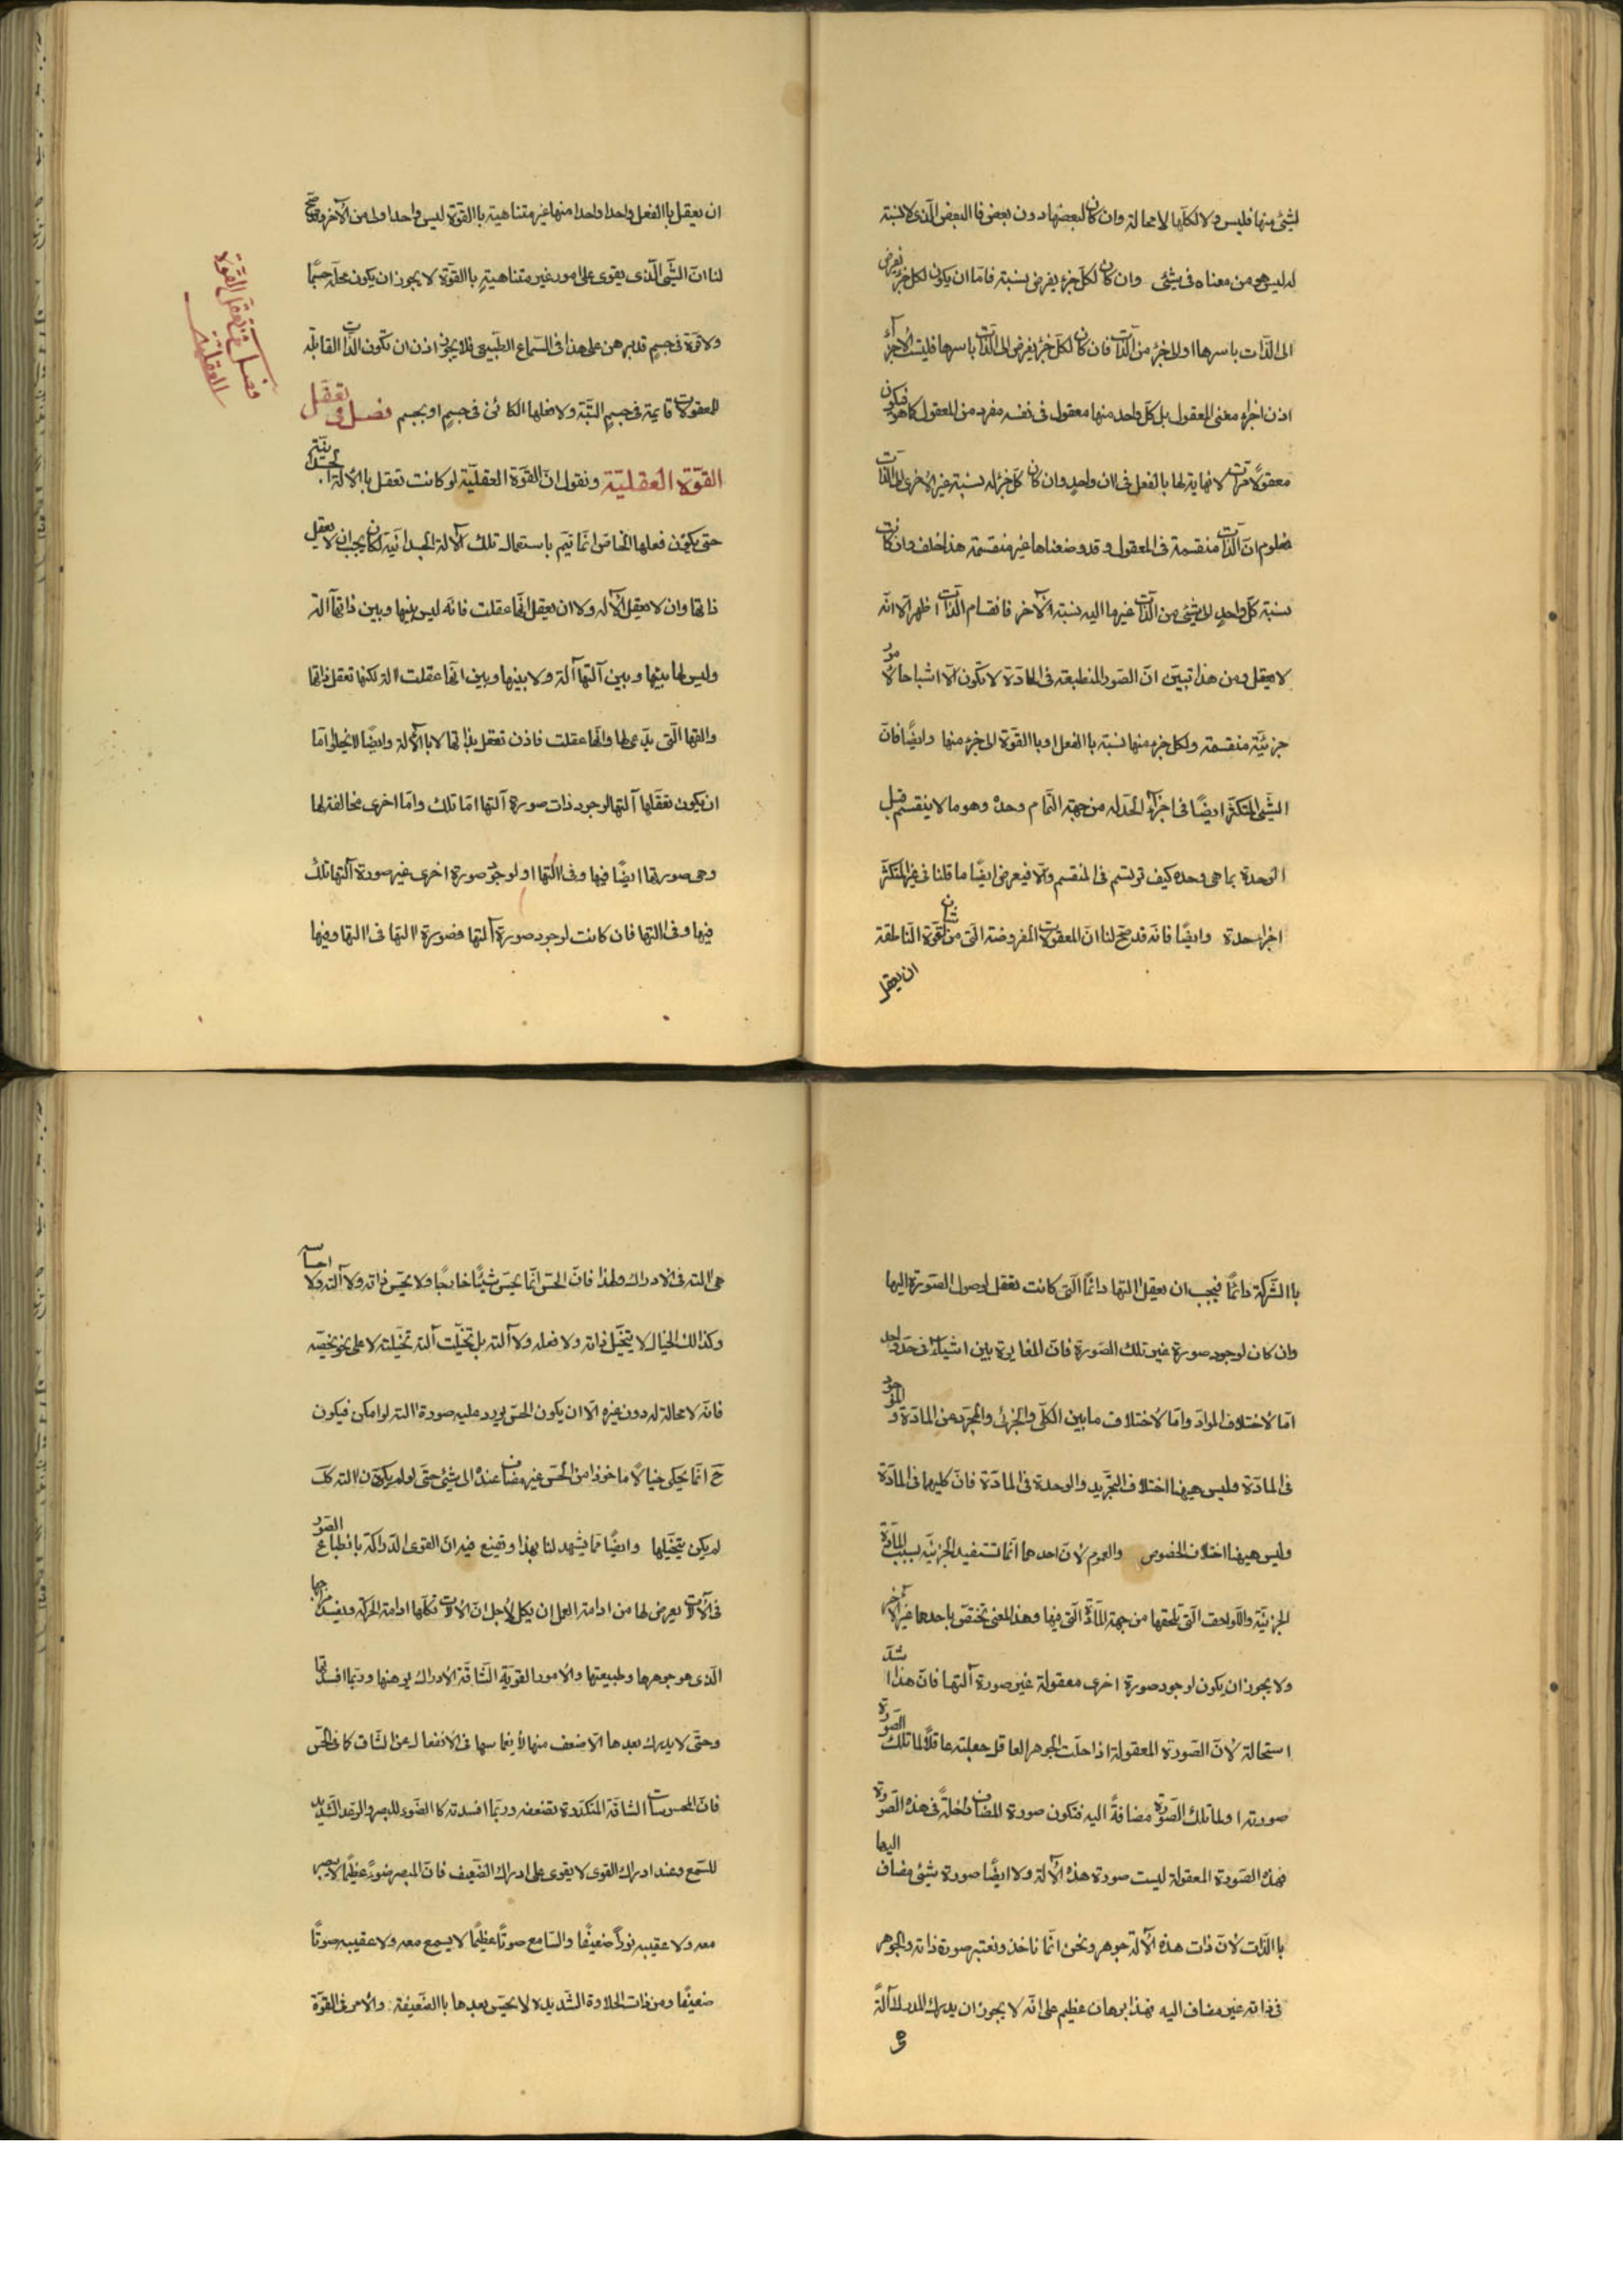 لشئ منها فليس ولا لكلها لا محالة وان كان لبعضها دون بعض فا البعض الذى لا نسبة
له ليس هو من معناه فى شئ وان كان لكل جزء يفرض نسبة فاما ان يكون لكل جزء يفرض
الى الذات باسرها او الى جزء من الذات فان كان لكل جزء يفرض الى الذات باسرها فليست الاجزاء
اذن اجزاء معنى المعقول بل كل واحد منها معقول فى نفسه مفرد من المعقول كما هو فيكون
معقولا مرات لا نهاية لها بالفعل فى ان واحد وان كان كل جزء له نسبة غير الاخرى الى الذات
فمعلوم ان الذات منقسمة فى المعقول وقد وضعناها غير منقسمة هذا خلف وان كانت
نسبة كل واحد الى شئ من الذات غير ما اليه نسبة الآخر فانقسام الذات اظهر الا انه
لا يعقل ومن هذا تبين ان الصور المنطبعة فى المادة لا تكون الا اشباحا لامور
جزئية منقسمة ولكل جزء منها نسبة باالفعل او باالقوة الى جزء منها وايضا فان
الشئ المتكثر ايضا فى اجزاء الحد له من جهة التمام وحدة وهو ما لا ينقسم قبل
الوحدة بما هى وحدة كيف ترتسم فى المنقسم والا فيعرض ايضا ما قلنا فى غير المتكثر
اجزاء حدة وايضا فانه قد صح لنا ان المعقولات المفروضة التى من شان القوة الناطقة
ان يعقل
ان يعقل باالفعل واحدا واحدا منها غير متناهية باالقوة ليس واحدا ولى من الآخر وقد صح
لنا ان الشئ الذى يقوى على امور غير متناهية باالقوة لا يجوز ان يكون محله جسما
ولا قوة فى جسم قد برهن على هذا فى السماع الطبيعى فلا يجوز اذن ان تكون الذات القابلة
للمعقولات قايمة فى جسم البتة ولا فعلها الكائن فى جسم او بجسم فصل فى تعقل
القوة العقلية ونقول ان القوة العقلية لو كانت تعقل باالآلة الجسدانية
حتى يكون فعلها الخاص انما تتم باستعمال تلك الآلة الجسدانية لكان يجب ان لا يعقل
ذاتها وان لا يعقل الآله ولا ان يعقل انها عقلت فانه ليس بينها وبين ذاتها آلة
وليس لها بينها وبين آلتها آلة ولا بينها وبين انها عقلت الة لكنها تعقل ذاتها
والتها التى يدعى لها وانها عقلت فاذن تعقل بذاتها لا باالآلة وايضا لا يخلو اما
ان يكون تعقلها آلتها لوجود ذات صورة آلتها اما تلك واما اخرى مخالفة لها
وهى صورتها ايضا فيها وفى التها او لوجود صورة اخرى غير صورة آلتها تلك
فيها وفى التها فان كانت لوجود صورة آلتها فصورة التها فى التها وفيها
فصل فى تعقل القوة
العقلية
باالشركة دائما فيجب ان يعقل التها دائما التى كانت تعقل لوصول الصورة اليها
وان كان لوجود صورة غير تلك الصورة فان المغايرة بين اشياء فى حد واحد
اما لاختلاف المواد واما لاختلاف ما بين الكلى والجزئى والمجرد عن المادة والموجود
فى المادة وليس هيهنا اختلاف التجريد والوحدة فى المادة فان كليهما فى المادة
وليس هيهنا اختلاف الخصوص والعموم لان احدهما انما تستفيد الجزئية بسبب المادة
الجزئية واللواحق التى تلحقها من جهة المادة التى فيها وهذا المعنى تختص باحدهما غير الآخر
ولا يجوز ان يكون لوجود صورة اخرى معقولة غير صورة آلتها فان هذا اشد
استحالة لان الصورة المعقولة اذا حلت الجوهر العاقل جعلته عاقلا لما تلك الصورة
صورته او لما تلك الصورة مضافة اليه فتكون صورة المضاف داخلة فى هذه الصورة
فهذه الصورة المعقولة ليست صورة هذه الآلة ولا ايضا صورة شئ مضاف اليها
باالذات لان ذات هذه الآلة جوهر ونحن انما ناخذ ونعتبر صورة ذاته والجوهر
فى ذاته غير مضاف اليه فهذا برهان عظيم على انه لا يجوز ان يدرك المدرك آلة
هى
هى التة فى الادراك ولهذا فان الحس انما يحس شيئا خارجا ولا يحس ذاته ولا آلته ولا احساسه
وكذالك الخيال لا يتخيل ذاته ولا فعله ولا آلته بل تخيلت آلته تخيلته لا على نحو يخصه
فانه لا محالة له دون غيره الا ان يكون الحس يورد عليه صورة التة لو امكن فيكون
ح انما يحكى خيالا ماخوذا من الحس غير مضاف عنده الى شئ حتى لو لم يكن التة كك
لم يكن يتخيلها وايضا مما يشهد لنا بهذا ويقنع فيه ان القوى الدراكة باانطباع الصور
فى الآلات يعرض لها من ادامة العمل ان يكل لاجل ان الآلات تكلها ادامة الحركة ويفسد مزاجها
الذى هو جوهرها وطبيعتها والامور القوية الشاقة الادراك يوهنها وربما افسدتها
وحتى لا يدرك بعدها الاضعف منها لانغماسها فى الانفعال عن الشاق كما فى الحس
فان المحسوسات الشاقة المتكررة تضعفه وربما افسدته كا الضوء للبصر والرعد الشديد
للسمع وعند ادراك القوى لا يقوى على ادراك الضعيف فان المبصر ضوءً عظيما لا يبصر
معه ولا عقيبه نورا ضعيفا والسامع صوتا عظيما لا يسمع معه ولا عقيبه صوتا
ضعيفا ومن ذاق الحلاوة الشديدة لا يحس بعدها باالضعيفة والامر فى القوة